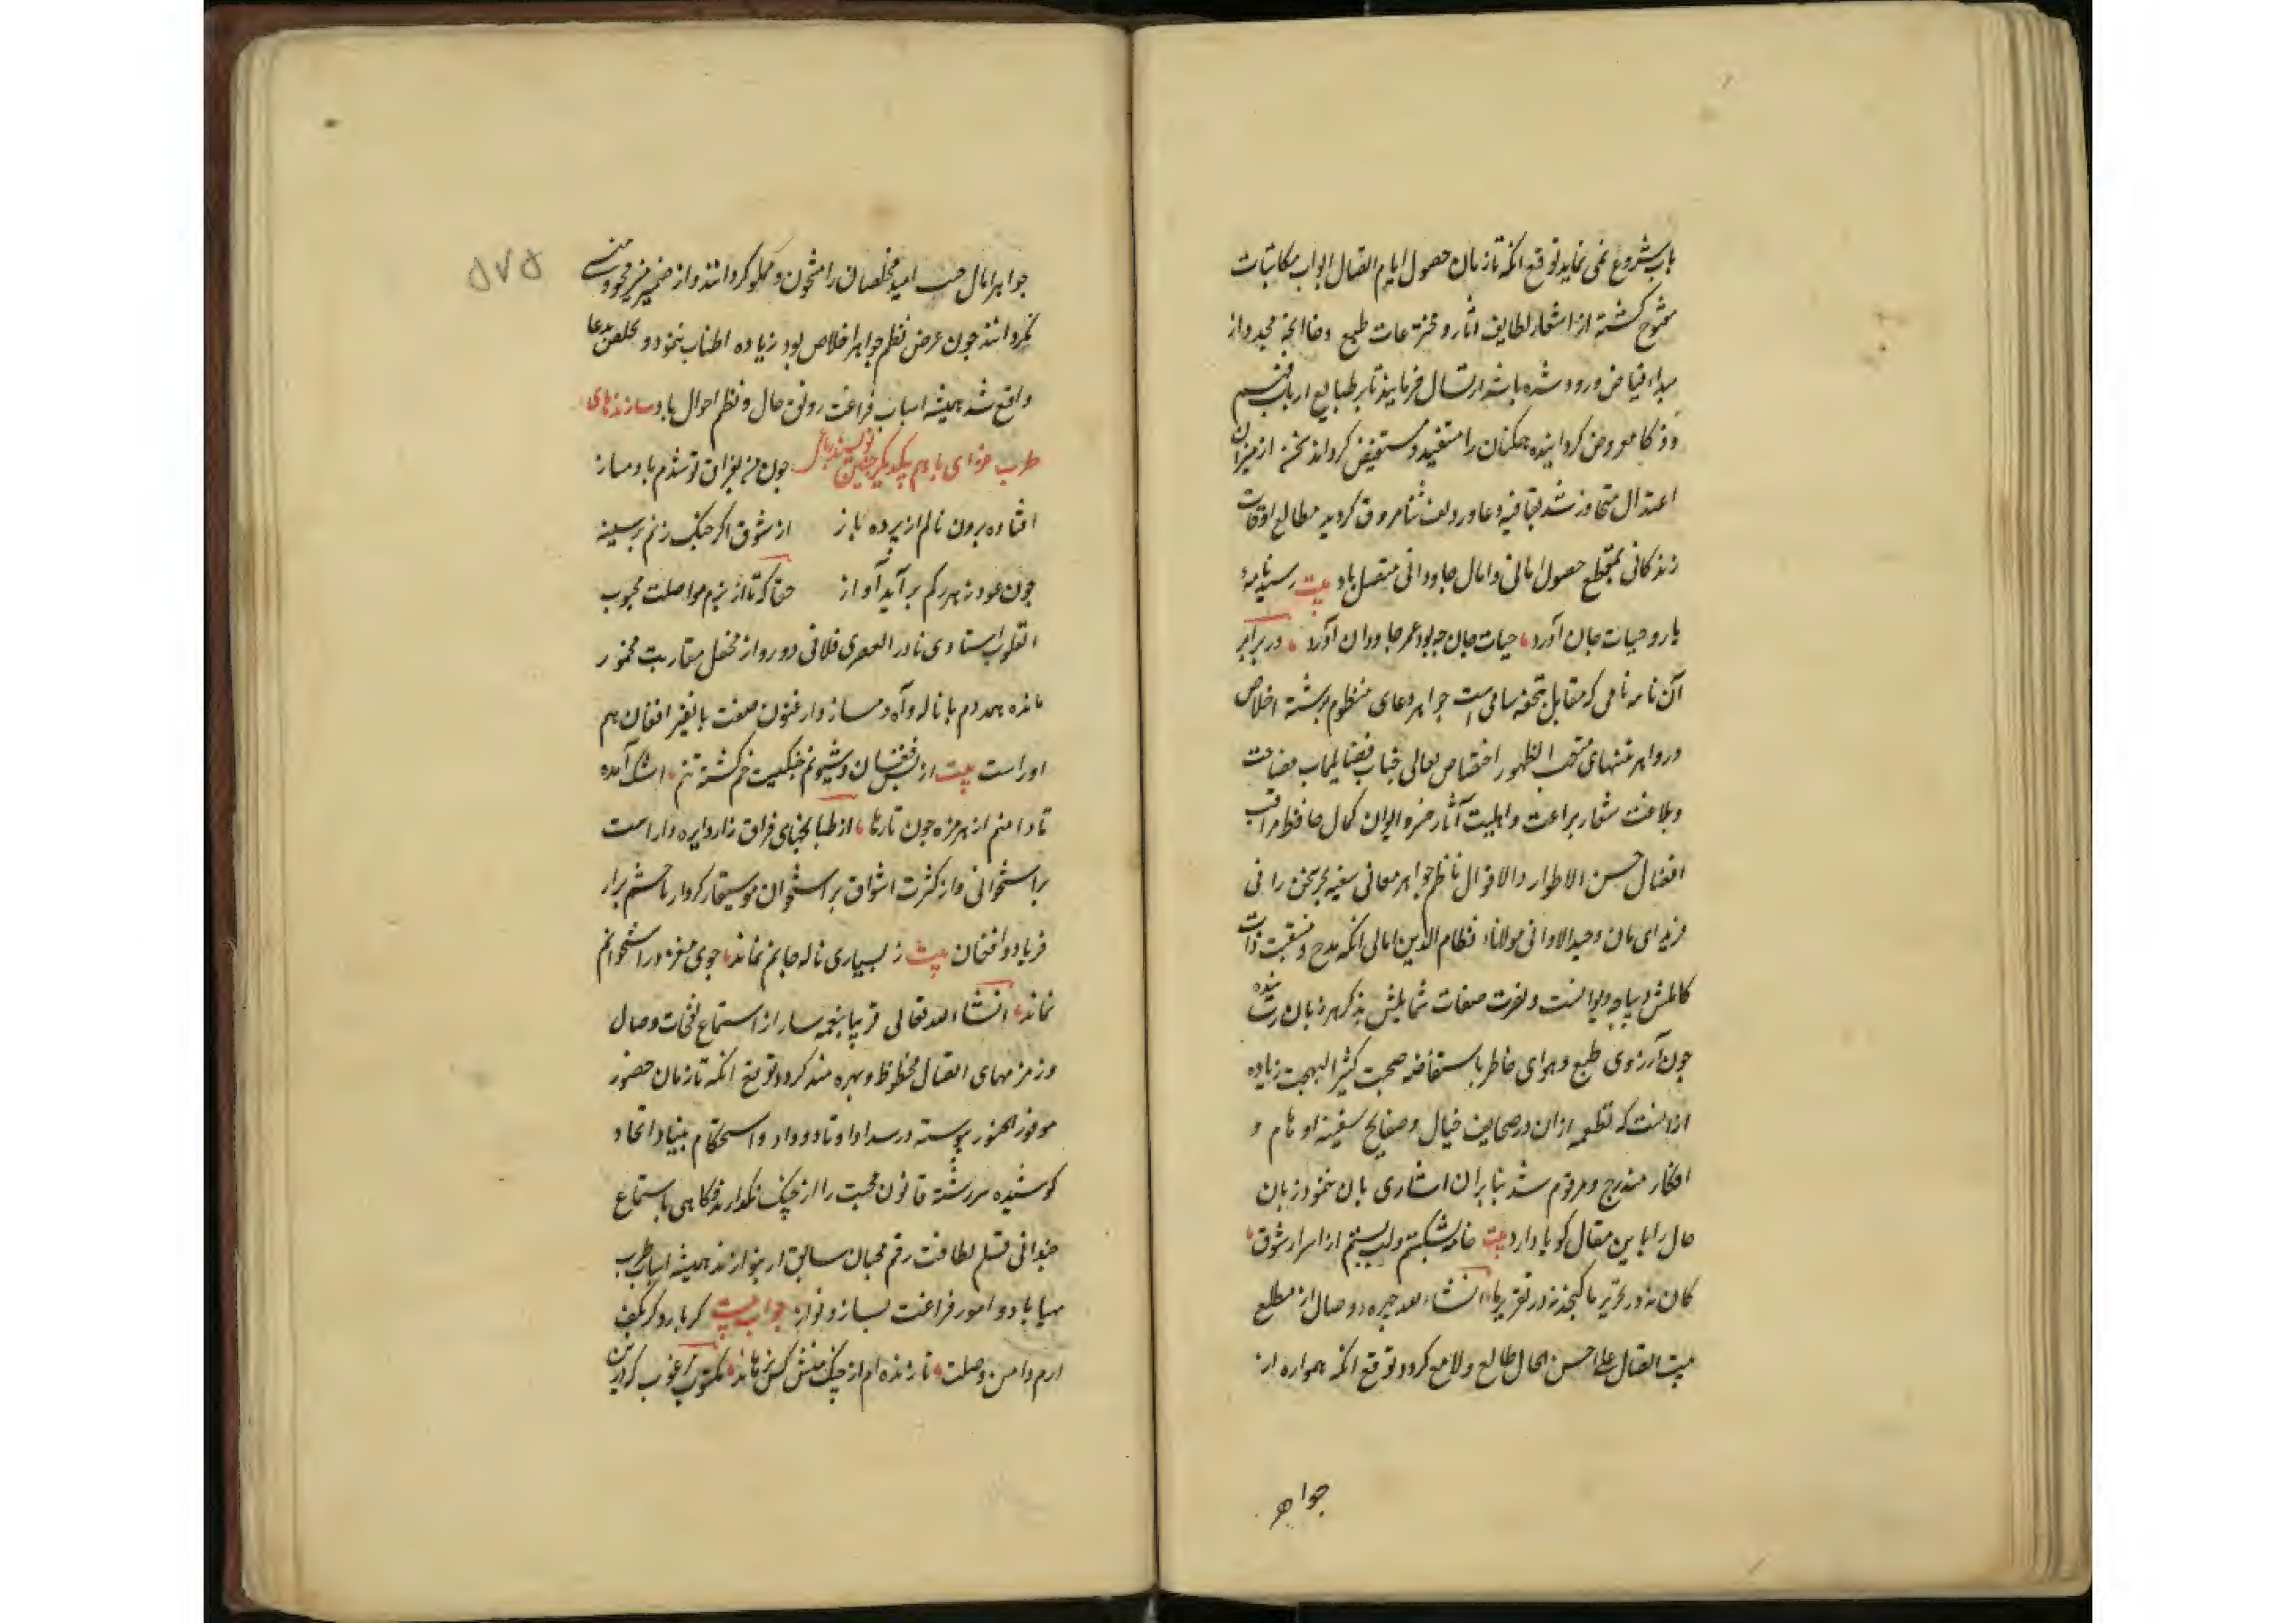 باب شروع نمی نماید توقع انکه تا زمان حصول ایام اتصال ابواب مکاتبات
مفتوح کشته از اشعار لطایف اثار و مخترعات طبع وفا انچه مجدد از
مبداء فیاض ورود شده باشد ارسال فرمایند تا بر طبایع ارباب فهم
و ذکا معروض کردانیده همکنان را مستفید و مستفیض کرداند سخن از میزان
اعتدال متجاوز شد بقافیه دعا و ردیف ثنا مروق کردید مطالع اوقات
زندکانی بمقطع حصول امانی و امال جاودانی متصل باد بیت رسید نامهٔ
یار و حیات جان آورد حیات جان چه بود عمر جاودان آورد در برابر
آن نامه نامی که مقابل تحفه سامی است جواهر دعای منظوم برشته اخلاص
و زواهر ثنتهای الظهور اختصاص بعالی جناب فضایل ماب فصاحت
و بلاغت شعار براعت و اهلیت آثار خسرو ایوان کمال حافظ مراتب
افضال حسن الاطوار والاقوال ناظم جواهر معانی سفینه بحر سخن رانی
فرید ای مان وحید الاوانی مولانا نظام الدین امالی انکه مدح و منقبت ذات
کاملش دیباچه دیوانست و نعت صفات شمایلش بذکر هر زبان
چون آرزوی طبع و هوای خاطر باستفاضه صحبت کثیر البهجت زیاده
ازانست که قطعهٔ ازان در صحایف خیال و صفایح سفینه اوهام و
افکار مندرج و مرقوم شد بنابران اشارتی بان نمود زبان
حال را باین مقال کویا دارد بیت خامه بشکستم و لب بستم از اسرار شوق
کان نه در تحریر ما کنجد نه در تقریر ما انشاء الله چهره وصال از مطلع
بیت اتصال علی احسن الحال طالع و لامع کردد توقع انکه همواره از
جواهر
جواهر امال جیب امید مخلصان را مشحون و مملو کردانند و از ضمیر منیر محو و منسی
نکردانند چون عرض نظم جواهر اخلاص بود زیاده اطناب ننمود و مخلص بدعا
واقع شد همیشه اسباب فراغت رونق حال و نظم احوال باد سازندهای
طرب فزای با هم یکدیکر چنین نویسند چون نی بفراق تو شدم با دمساز
افتاده برون نالم از پرده راز از شوق اکر چنک زنم بر سینه
چون عود ز هر رکم بر آید آواز حقا که تا از بزم مواصلت محبوب
القلوب استادی نادر العصری فلانی دور و از محفل مقاربت مهجور
مانده همدم با ناله و آه دمساز و ارغنون صفت با نفیر افغان هم
اوراست بیت از بس فغان و شیونم چنکیست خم کشته تنم اشک آمده
تا دامنم از هر مژه چون تارها از طبانچهای فراق زار دایره واراست
بر استخوانی و از کثرت اشواق بر استخوان موسیقار کردار
فریاد و افغان بیت ز بسیاری ناله جانم نماند جوی مغز در استخوانم
نماند انشاء الله تعالی قریبا نغمه سار از استماع نغمات وصال
و زمزمهای اتصال محظوظ و بهره مند کردد توقع انکه تا زمان حضور
موفور السرور پیوسته در سداد اوتاد وداد و استحکام بنیاد اتحاد
کوشیده سررشته قانون محبت را از چنک نکذارند و کاهی باستماع
قلم لطافت رقم محبان سابق را بنوازند همیشه اسباب طرب
مهیا باد و امور فراغت بساز و نواز جواب بیت کر بار دکر بکف
ارم دامن وصلت تا زنده ام از چنک منش کس نرهاند مکتوب مرغوب کزین